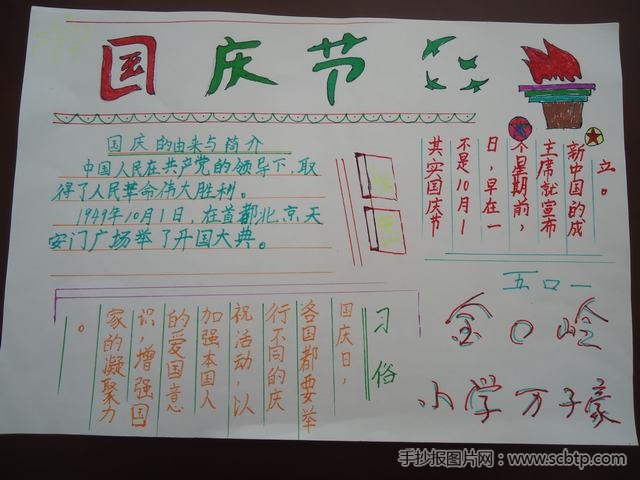 国庆节
国庆的由来与简介
中国人民在共产党的领导下,取
得了人民革命伟大胜利。
1949年10月1日,在首都北京天
安门广场举了开国大典。
其实国庆节
不是10月1
日,早在一
个星期前,
主席就宣布
新中国的成
立。
习俗
国庆日,
各国都要举
行不同的庆
祝活动,以
加强本国人
的爱国意
识,增强国
家的凝聚力
。
五口一
金口岭
小学万子豪
手抄报图片网:www.scbtp.com